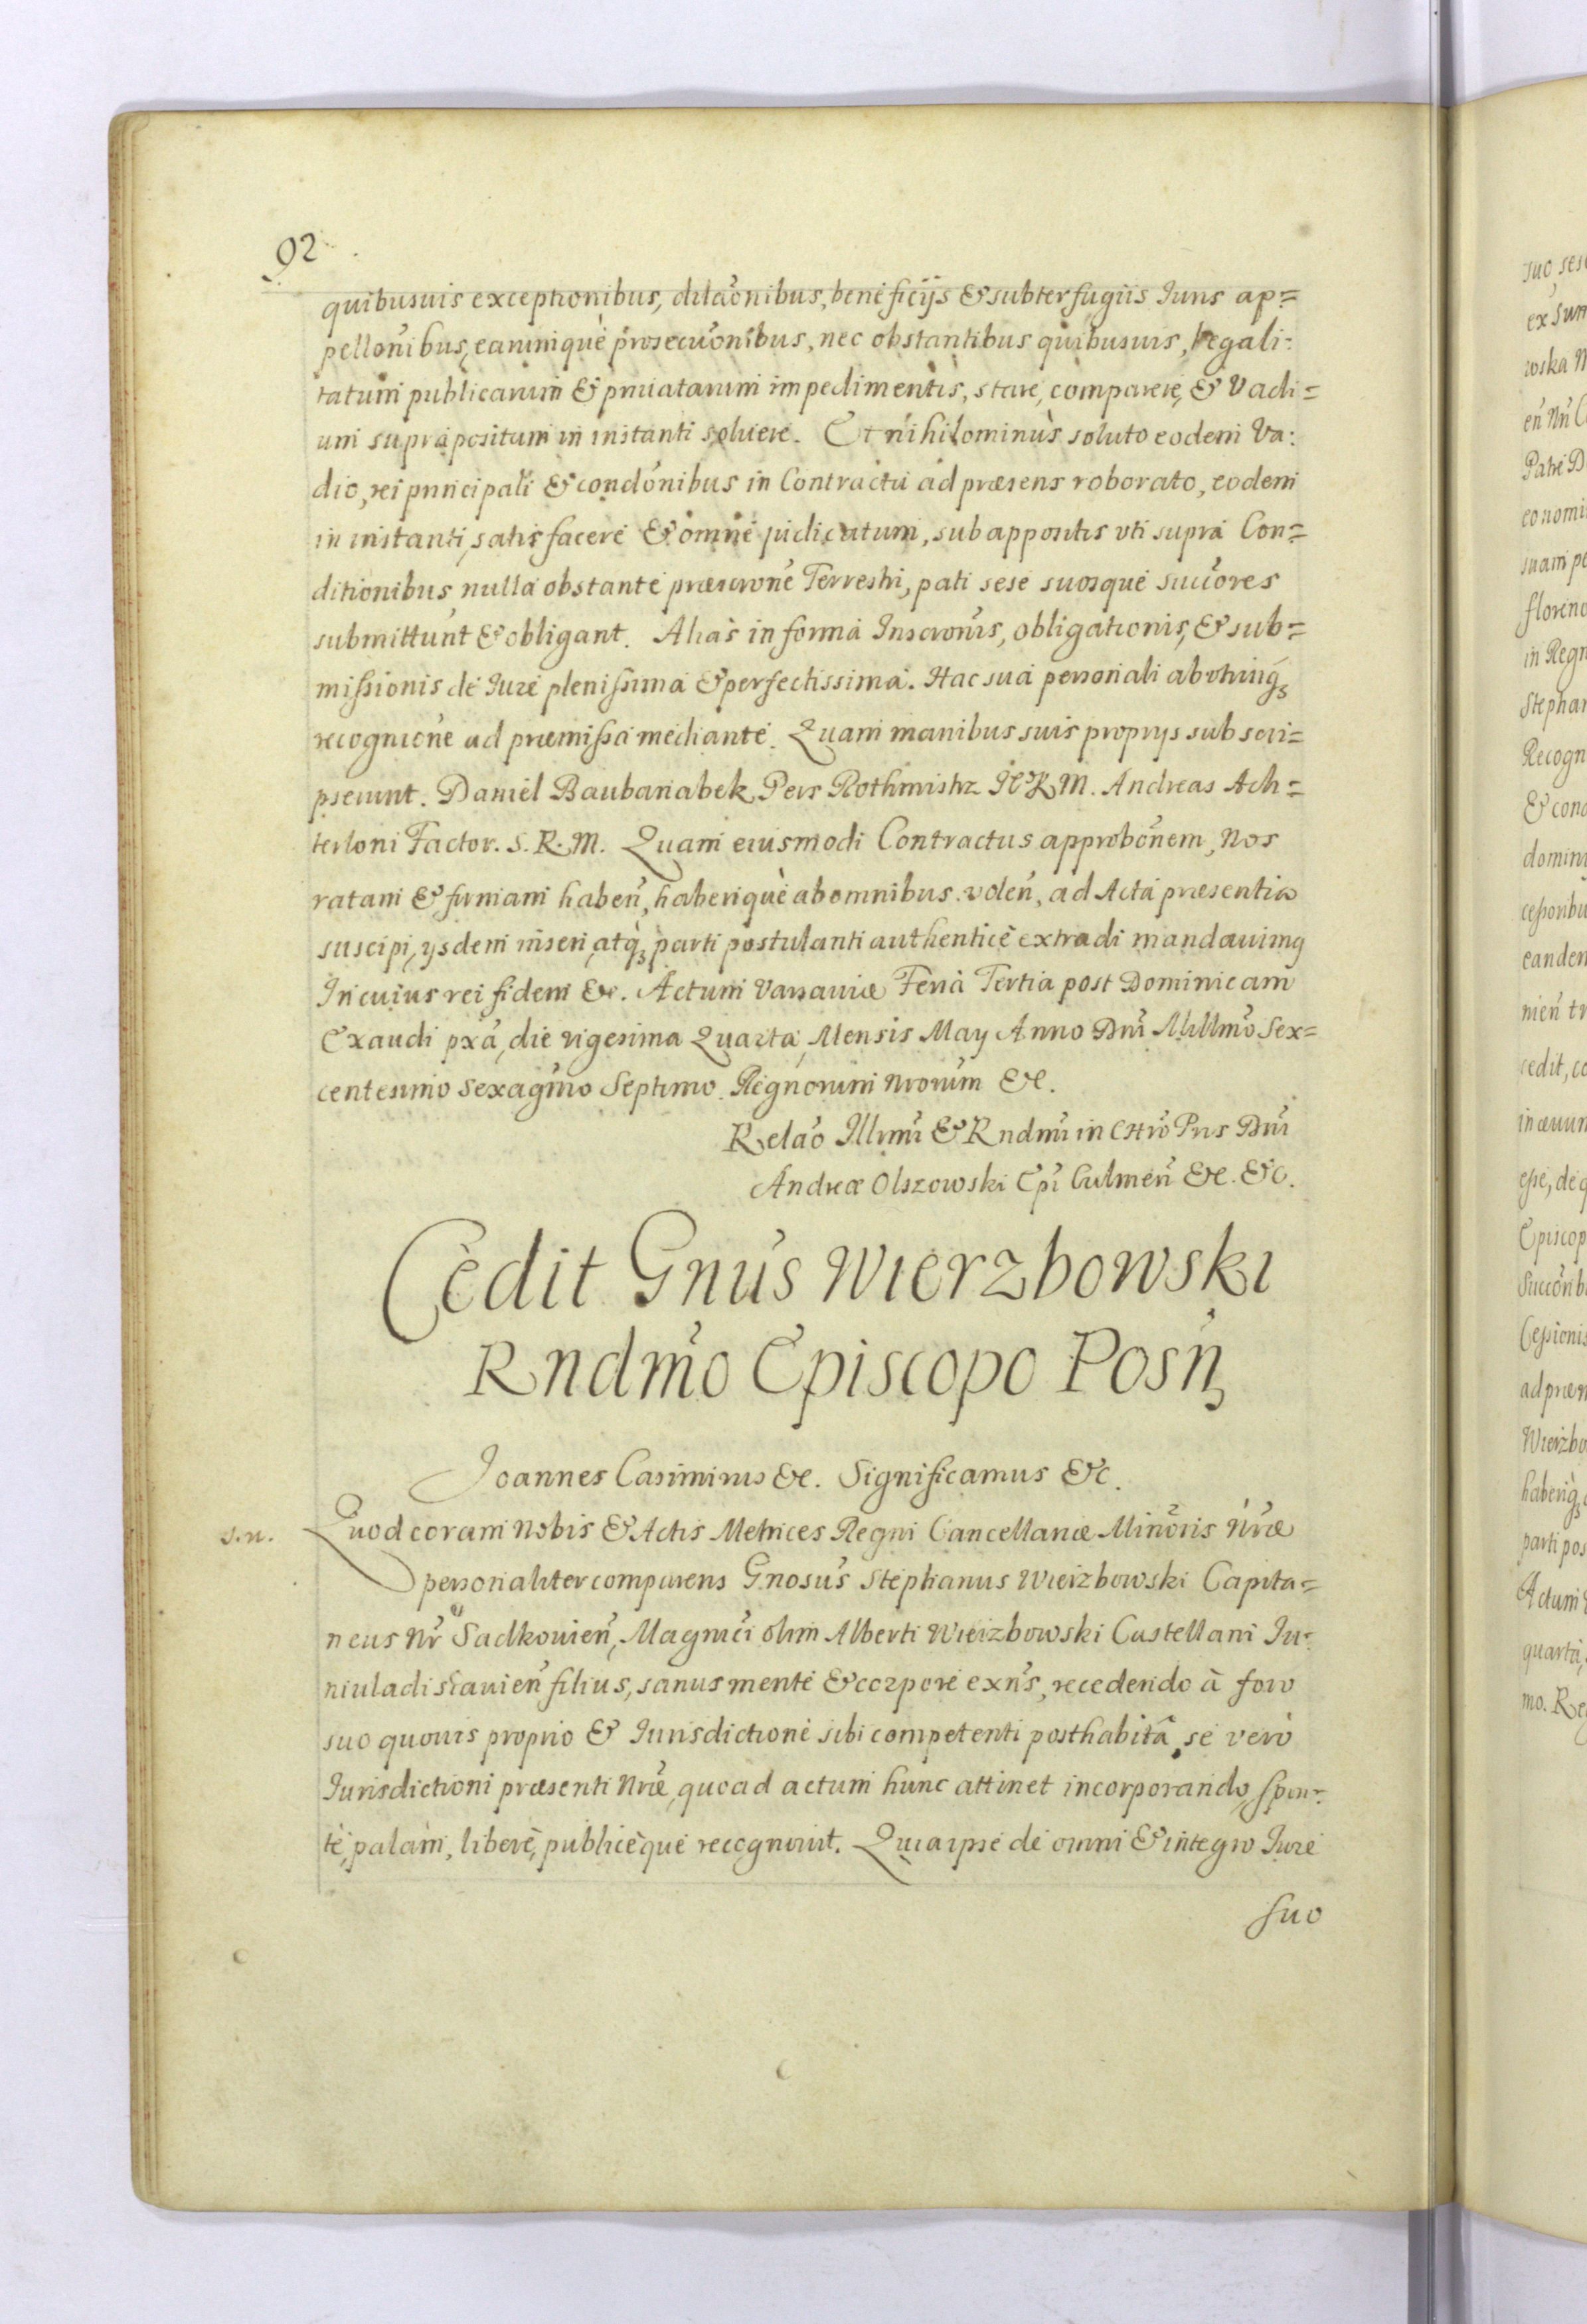 92
quibusuis exceptionibus, dilaõnibus, beneficijs & subterfugiis Iuris ap=
pellõnibus, earumique prosecuõnibus, nec obstantibus quibusuis, legali=
tatum publicarum & priuatarum impedimentis, stare, comparere, & Vadi=
um suprapositum in instanti soluere. Et nihilominus soluto eodem Va:
dio, rei principali & condõnibus in Contractu ad præsens roborato, eodem
in instanti, satisfacere & omne judicatum, sub appositis vti supra Con=
ditionibus nulla obstante præscrone Terrestri, pati sese suosque succores
submittunt & obligant. Alias in forma Inscronis, obligationis, & sub=
missionis de Iure plenissima & perfectissima. Hac sua personali ab vtrinq
recognione ad præmissa mediante. Quam manibus suis proprijs subscri=
pserunt. Daniel Baubanabek Pers Rothmistrz JKM. Andreas Ach=
terloni Factor. S. R. M. Quam eiusmodi Contractus approbõnem, Nos
ratam & firmam haben, haberique ab omnibus volen, ad Acta præsentia
suscipi, ysdem inseri, atq parti postulanti authentice extradi mandauimq
In cuius rei fidem &c. Actum Varsauiæ Feria Tertia post Dominicam
Exaudi pxa, die vigesima Quarta, Mensis May Anno Dni Millmo Sex=
centesimo Sexagmo Septimo. Regnorum Nrorum &c.
Relao Illrmi & Rndmi in Chro Pris Dni
Andreæ Olszowski Epi Culmen &c. &c.
Cedit Gnus Wierzbowski
Rndmo Episcopo Posn
Joannes Casimirus &c. Significamus &c.
s. n. Quod coram Nobis & Actis Metrices Regni Cancellariæ Minoris Nræ
personaliter comparens Gnosus Stephanus Wierzbowski Capita=
neus Nr Sadkouien, Magnici olim Alberti Wierzbowski Castellani Ju=
niuladislauien filius, sanus mente & corpore exns, recedendo à foro
suo quouis proprio & Iurisdictione sibi competenti posthabitâ, se vero
Iurisdictioni præsenti Nræ, quoad actum hunc attinet incorporando, spon=
te, palam, libere, publiceque recognouit. Quia ipse de omni & integro Iure
suo